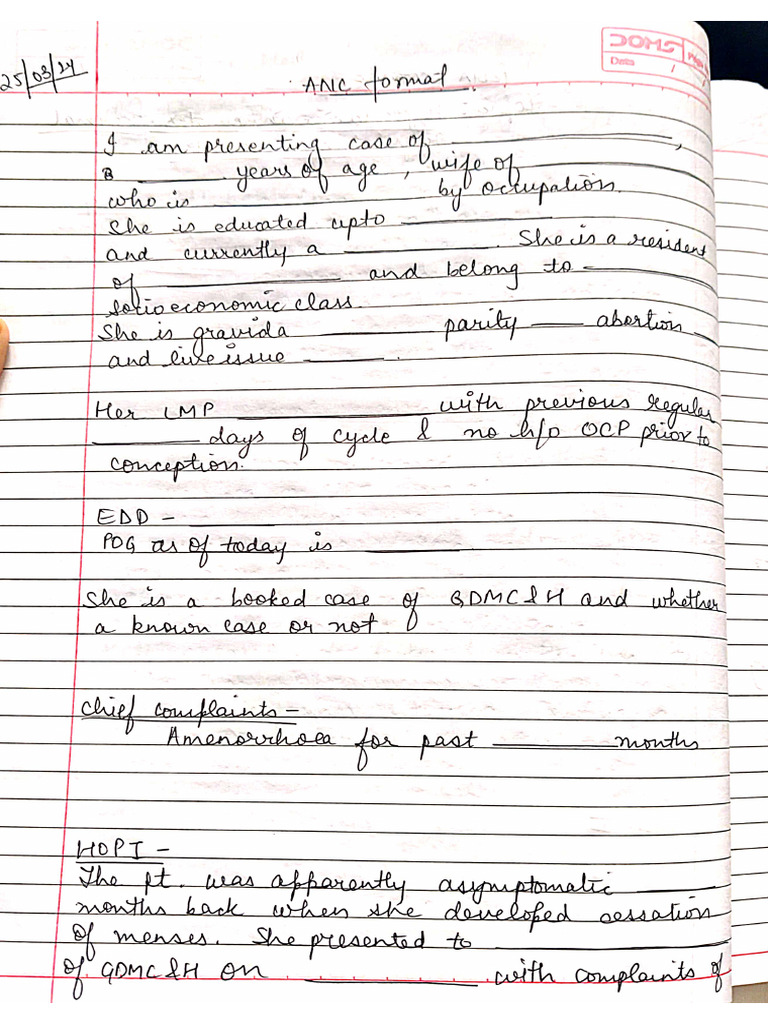 DOMS
Date / /
25/03/24
ANC format
I am presenting case of ____________,
____ years of age, wife of
who is ____________ by occupation.
She is educated upto ____________
and currently a ________. She is a resident
of ____________ and belong to ____
socioeconomic class
She is gravida ________ parity ____ abortion
and live issue ______.
Her LMP ____________ with previous regular
________ days of cycle & no h/o OCP prior to
conception.
EDD - ________
POG as of today is ________
She is a booked case of GDMC&H and whether
a known case or not.
Chief complaints -
Amenorrhoea for past ________ months
HOPI -
The pt. was apparently asymptomatic ______
months back when she developed cessation
of menses. She presented to ____________
of GDMC&H on ____________ with complaints of